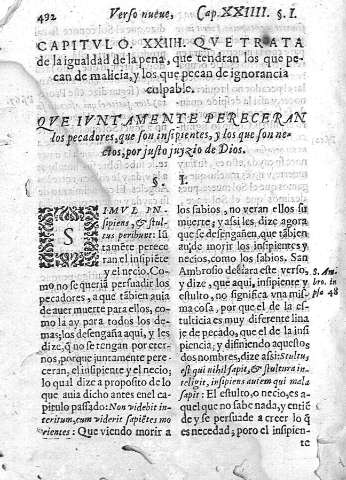 492 Verso nueue, Cap. XXIIII. §. I.
CAPITVLO. XXIIII. QVE TRATA
de la igualdad de la pena, que tendran los que pe-
can de malicia, y los que pecan de ignorancia
culpable.
QVE IVNTAMENTE PERECERAN
los pecadores, que son insipientes, y los que son ne-
cios, por justo juyzio de Dios.
§. I.
SIMVL IN-
sipiens, & stul-
tus peribunt: Iũ
tamẽte perece
ran el insipiẽte
y el necio. Co-
mo no se queria persuadir los
pecadores, a que tãbien auia
de auer muerte para ellos, co-
mo la ay para todos los de-
mas; los desengaña aqui, y les
dize, q̃ no se tengan por eter-
nos, porque juntamente pere-
ceran, el insipiente, y el necio;
lo qual dize a proposito de lo
que auia dicho antes enel ca-
pitulo passado: Non videbit in-
teritum, cum viderit sapiẽtes mo
rientes: Que viendo morir a
los sabios, no veran ellos su
muerte; y assi les dize agora
que se desengañen, que tãbien
han de morir los insipientes y
necios, como los sabios. San
Ambrosio declara este verso,
y dize, que aqui, insipiente y
estulto, no significa vna mis-
ma cosa, por que el de la es-
tulticia es muy diferente lina
je de pecado, que el de la insi-
piencia; y difiniendo aquestos
dos nombres, dize assi: Stultus,
est qui nihil sapit, & stultura in-
teligit, insipiens autem qui mala
sapit: El estulto, o necio, es a-
quel que no sabe nada, y entiẽ
de y se persuade a creer lo q̃
es necedad; pero el insipien-
te
S. Am
bro. in
ps. 48